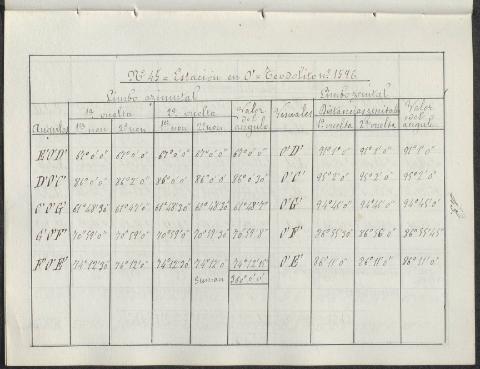 Nº 45 = Estación en O' = Teodolito nº 1596
Limbo azimutal Limbo zenital
1ª vuelta 2ª vuelta Valor del ángulo Visuales Distancias zenitales Valor del ángulo
Ángulos 1er non 2º non 1er non 2º non 1ª vuelta 2ª vuelta
E'O'D' 67° 0' 0" 67° 0' 0" 67° 0' 0" 67° 0' 0" 67° 0' 0" O'D' 91° 1' 0" 91° 1' 0" 91° 1' 0"
D'O'C' 86° 0' 0" 86° 2' 0" 86° 0' 0" 86° 0' 0" 86° 0' 30" O'C' 95° 2' 0" 95° 2' 0" 95° 2' 0"
C'O'G' 61° 48' 30" 61° 47' 0" 61° 48' 30" 61° 48' 30" 61° 48' 7" O'G' 94° 45' 0" 94° 45' 0" 94° 45' 0"
G'O'F' 70° 59' 0" 70° 59' 0" 70° 59' 0" 70° 59' 30" 70° 59' 8" O'F' 86° 55' 30" 86° 56' 0" 86° 55' 45"
F'O'E' 74° 12' 30" 74° 12' 0" 74° 12' 30" 74° 12' 0" 74° 12' 15" O'E' 86° 11' 0" 86° 11' 0" 86° 11' 0"
Suman 360° 0' 0"